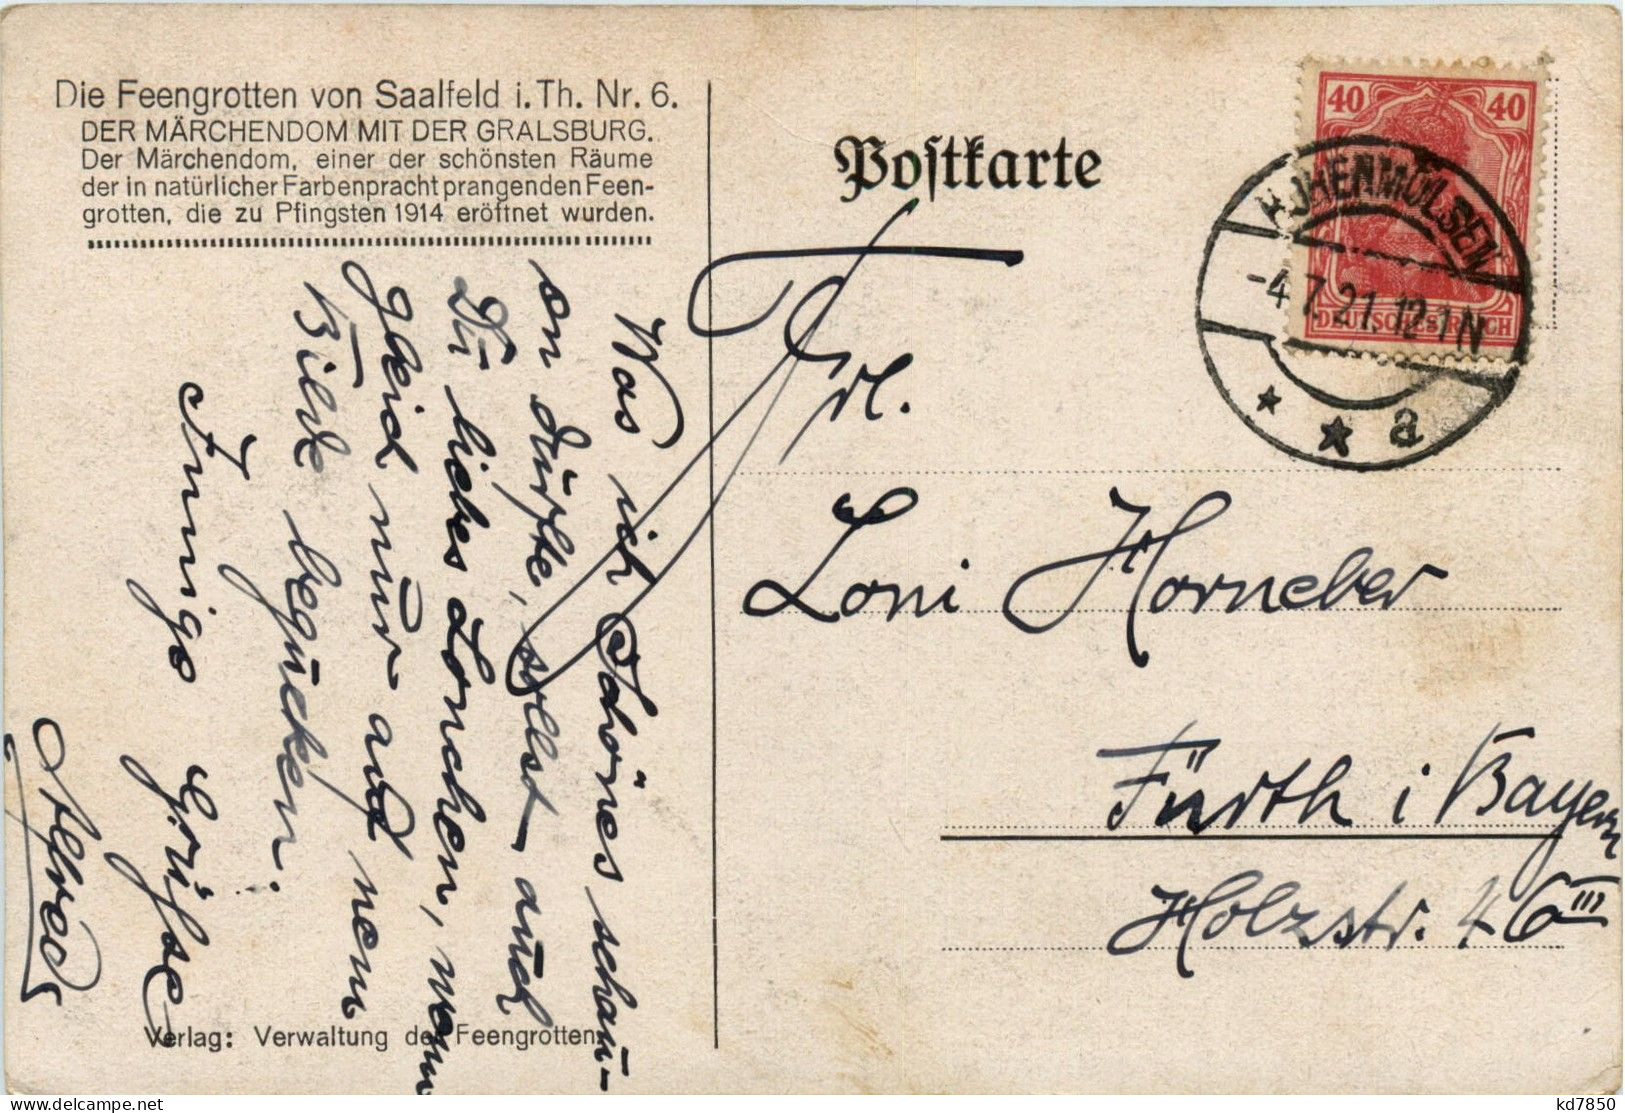 Die Feengrotten von Saalfeld i. Th. Nr. 6.
DER MÄRCHENDOM MIT DER GRALSBURG.
Der Märchendom, einer der schönsten Räume
der in natürlicher Farbenpracht prangenden Feen-
grotten, die zu Pfingsten 1914 eröffnet wurden.
Was ich Schönes schau-
en durfte, sollst auch
Du liebes Lonchen, wenn
gleich nur auf nem
Bilde begucken.
Innige Grüsse
Alfred
Verlag: Verwaltung der Feengrotten.
Postkarte
40 40
DEUTSCHES REICH
HOHENMÖLSEN
-4.7.21. 12-1N
* * a
Frl.
Loni Horneber
Fürth i Bayern
Holzstr. 46 III
kd7850